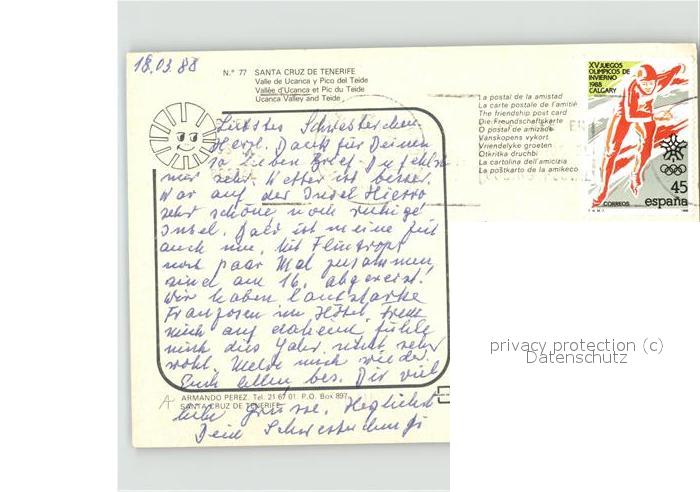 18.03.88
N.° 77 SANTA CRUZ DE TENERIFE
Valle de Ucanca y Pico del Teide
Vallée d'Ucanca et Pic du Teide
Ucanca Valley and Teide
La postal de la amistad
La carte postale de l'amitié
The friendship post card
Die Freundschaftskarte
O postal de amizade
Vänskopens vykort
Vriendelyke groeten
Otkritka druchbi
La cartolina dell'amicizia
La poŝtkarto de la amikeco
XV JUEGOS
OLIMPICOS DE
INVIERNO
1988
CALGARY
45
españa
CORREOS
Liebstes Schwesterchen
Herzl. Dank für Deinen
so lieben Brief. Du fehlst
mir sehr. Wetter ist besser.
War auf der Insel Hierro
sehr schöne noch ruhige
Insel. Bald ist meine Zeit
auch um. Mit
noch paar Mal zusammen,
sind am 16. abgereist.
Wir haben lautstarke
Franzosen im Hotel. Freue
mich auf daheim, fühle
mich dies Jahr nicht sehr
wohl. Melde mich wieder.
Euch allen bes. Dir viel
liebe Grüsse. Herzlichst
Dein Schwesterchen
ARMANDO PEREZ. Tel. 21 67 01. P.O. Box 897
SANTA CRUZ DE TENERIFE
privacy protection (c)
Datenschutz